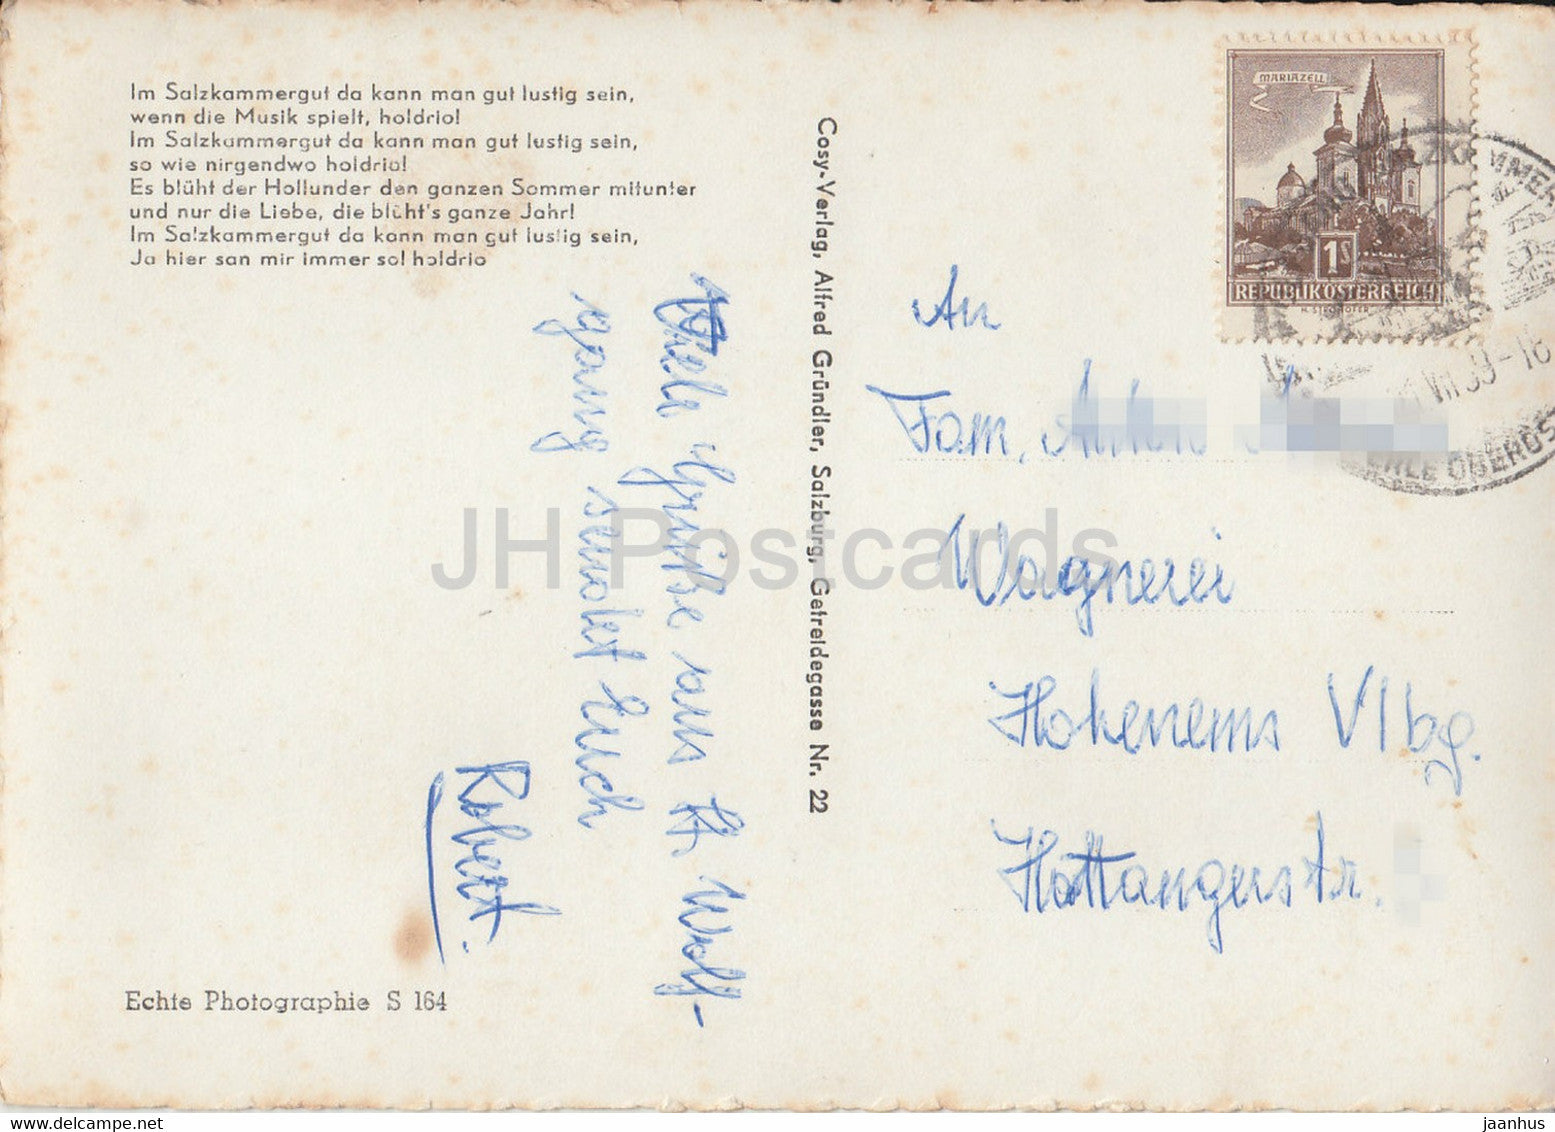 Im Salzkammergut da kann man gut lustig sein,
wenn die Musik spielt, holdrio!
Im Salzkammergut da kann man gut lustig sein,
so wie nirgendwo holdrio!
Es blüht der Hollunder den ganzen Sommer mitunter
und nur die Liebe, die blüht's ganze Jahr!
Im Salzkammergut da kann man gut lustig sein,
Ja hier san mir immer so! holdrio
Viele Grüße aus St. Wolf-
gang sendet Euch
Robert.
Echte Photographie S 164
Cosy-Verlag, Alfred Gründler, Salzburg, Getreidegasse Nr. 22
MARIAZELL
1S
REPUBLIK ÖSTERREICH
An
Fam. Anton
Wagnerei
Hohenems Vlbg.
Hattangerstr.
JH Postcards
www.delcampe.net
jaanhus